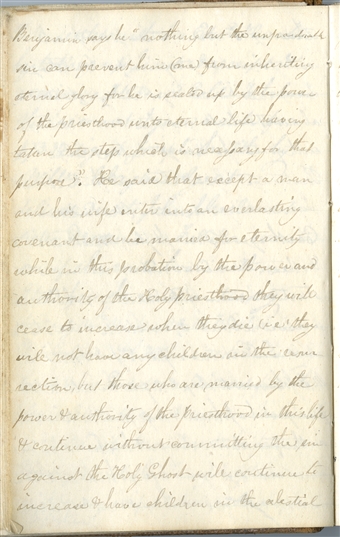 Benjamin says he "nothing but the unpardonable
sin can prevent him (me) from inheriting
eternal glory for he is sealed up by the power
of the priesthood unto eternal life having
taken the step which is necessary for that
purpose". He said that except a man
and his wife enter into an everlasting
covenant and be married for eternity
while in this probation by the power and
authority of the Holy priesthood they will
cease to increase when they die (i e they
will not have any children in the resur
rection, but those who are married by the
power & authority of the priesthood in this life
& continue without committing the sin
against the Holy Ghost will continue to
increase & have children in the celestial